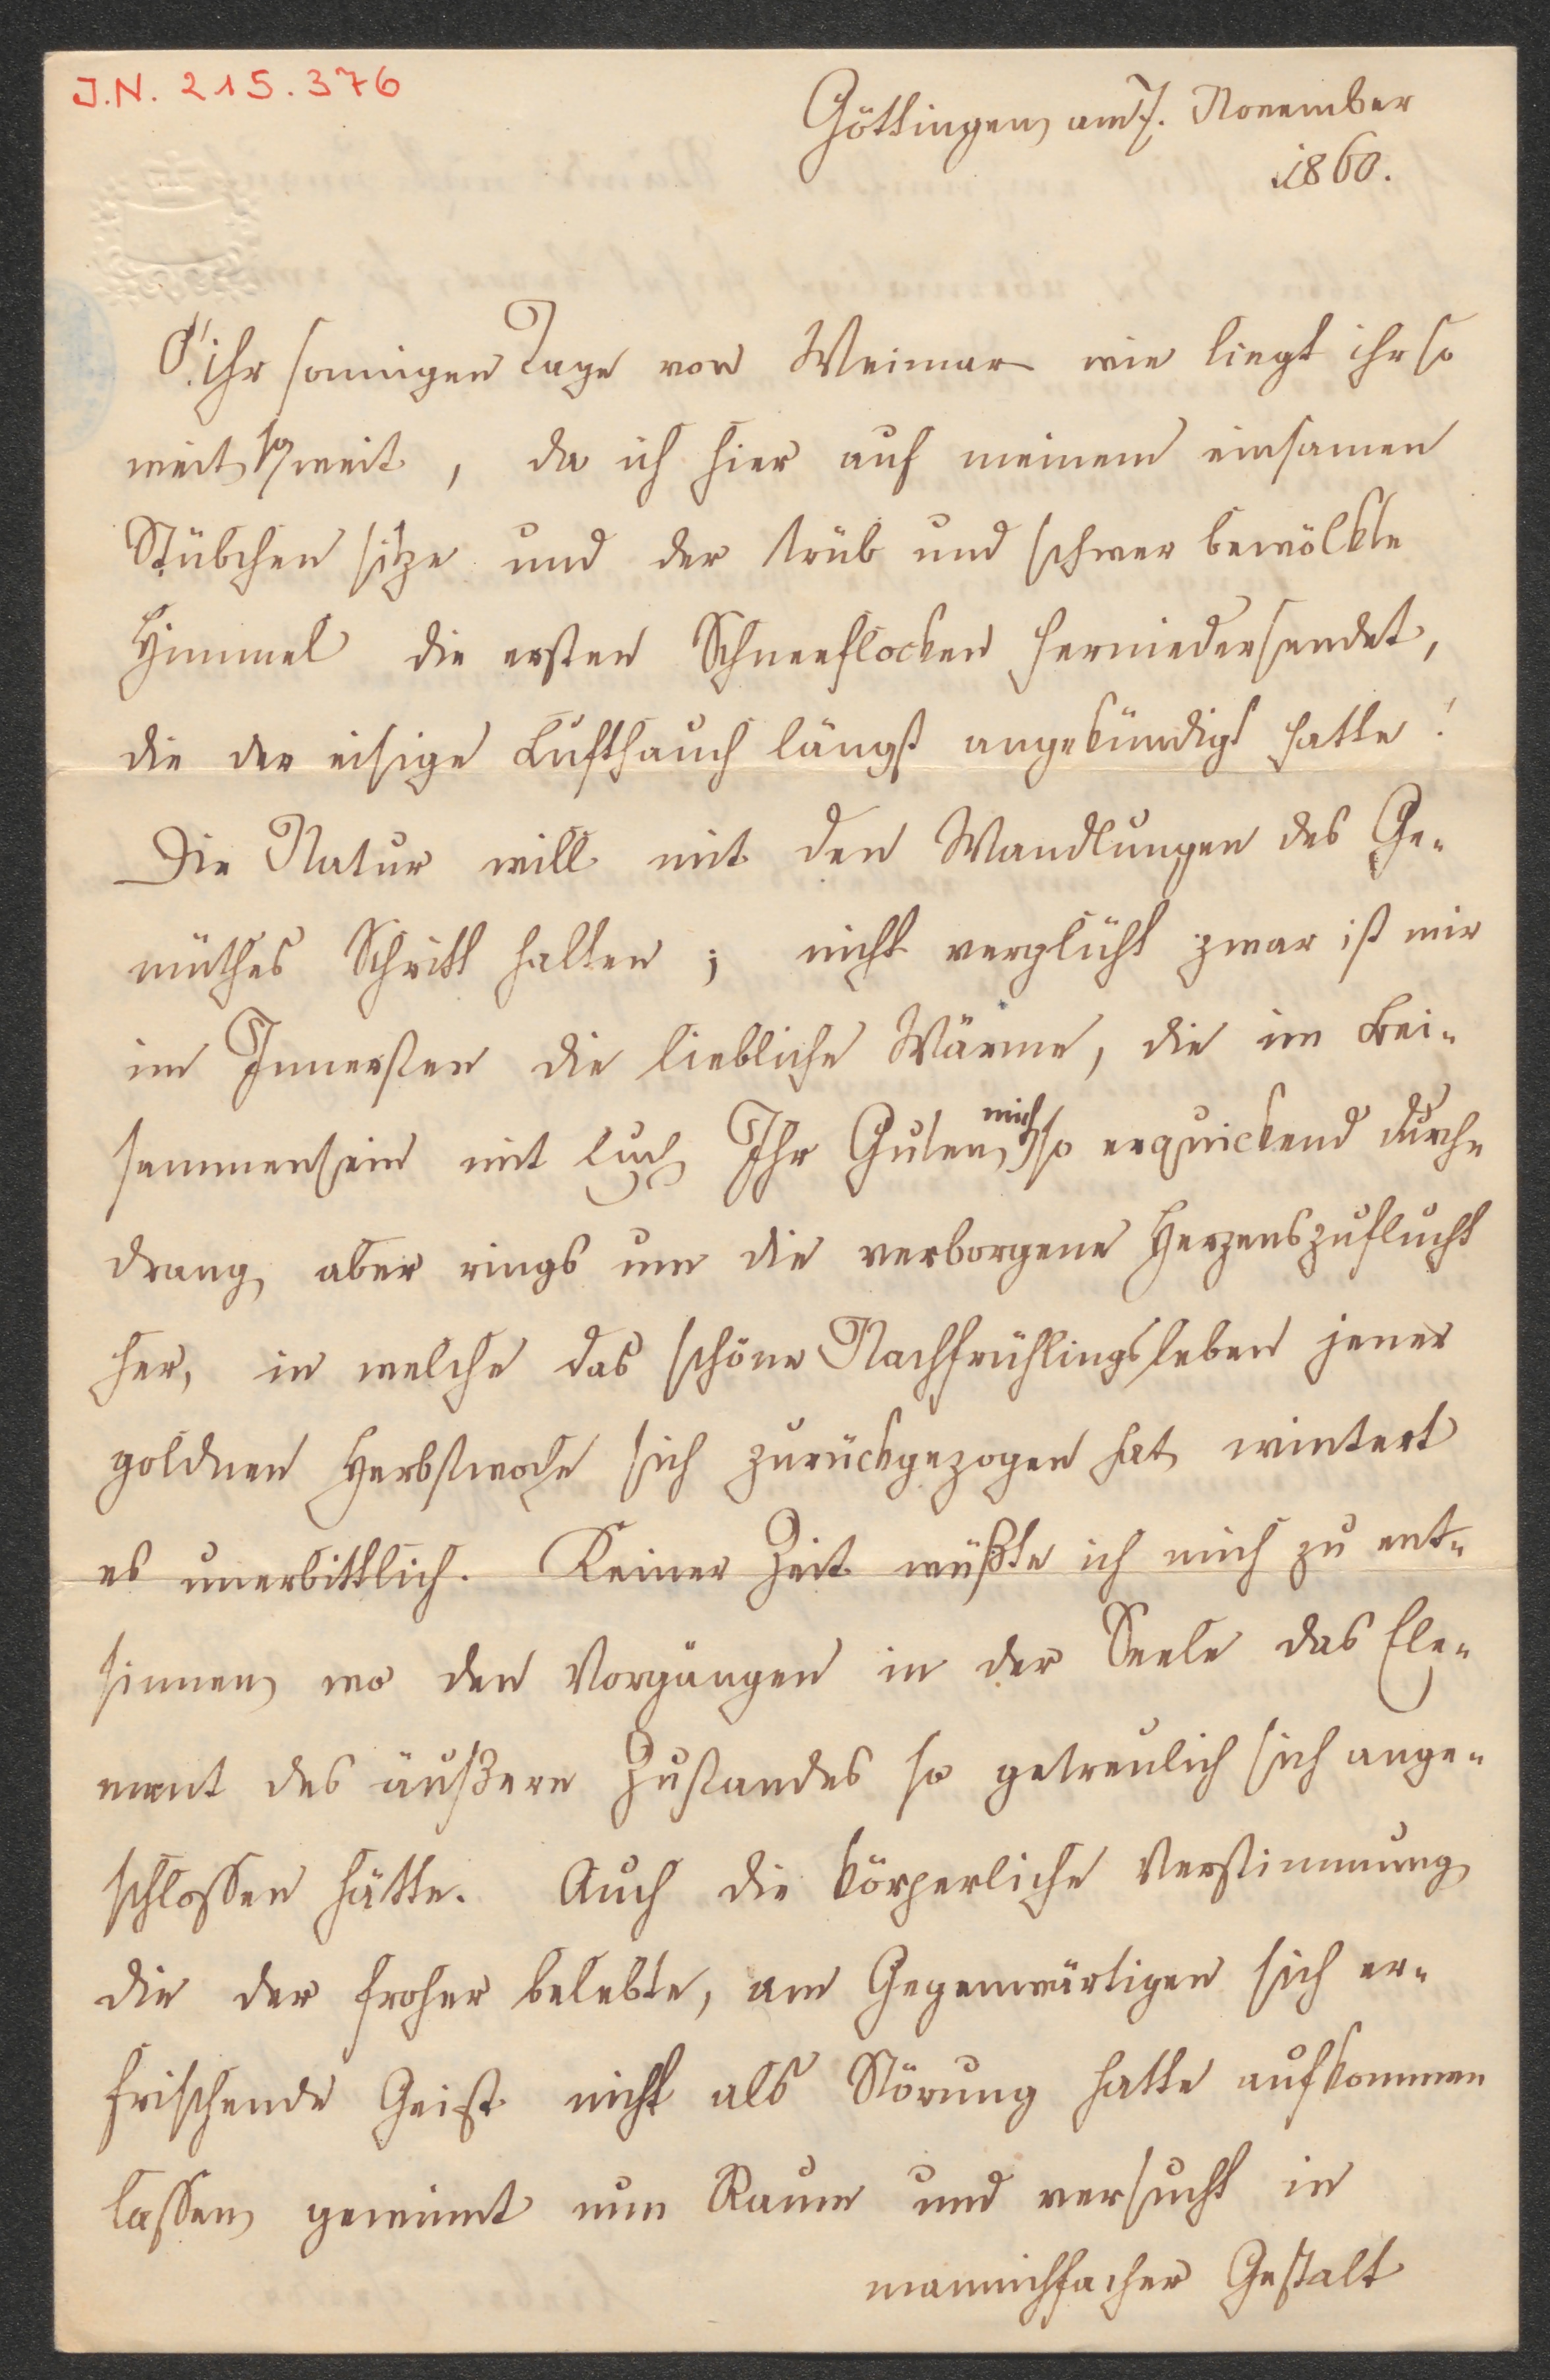 J.N. 215.376
Göttingen am 7. November
1860.
O! ihr sonnigen Tage von Weimar wie liegt ihr so
weit so weit, da ich hier auf meinem einsamen
Stübchen sitze und der trüb und schwer bewölkte
Himmel die ersten Schneeflocken herniedersendet,
die der eisige Lufthauch längst angekündigt hatte!
Die Natur will mit den Wandlungen des Ge-
müthes Schritt halten; nicht verglüht zwar ist mir
im Innersten die liebliche Wärme, die im Bei-
sammensein mit Euch Ihr Guten mich so erquickend durch-
drang, aber rings um die verborgene Herzenszuflucht
her, in welche das schöne Nachfrühlingsleben jener
goldnen Herbstwoche sich zurückgezogen hat, wintert
es unerbittlich. Keiner Zeit wüßte ich mich zu ent-
sinnen, wo den Vorgängen in der Seele das Ele-
ment des äußern Zustandes so getreulich sich ange-
schlossen hätte. Auch die körperliche Verstimmung
die der froher belebte, am Gegenwärtigen sich er-
frischende Geist nicht als Störung hatte aufkommen
lassen, gewinnt nun Raum und versucht in
mannichfacher Gestalt